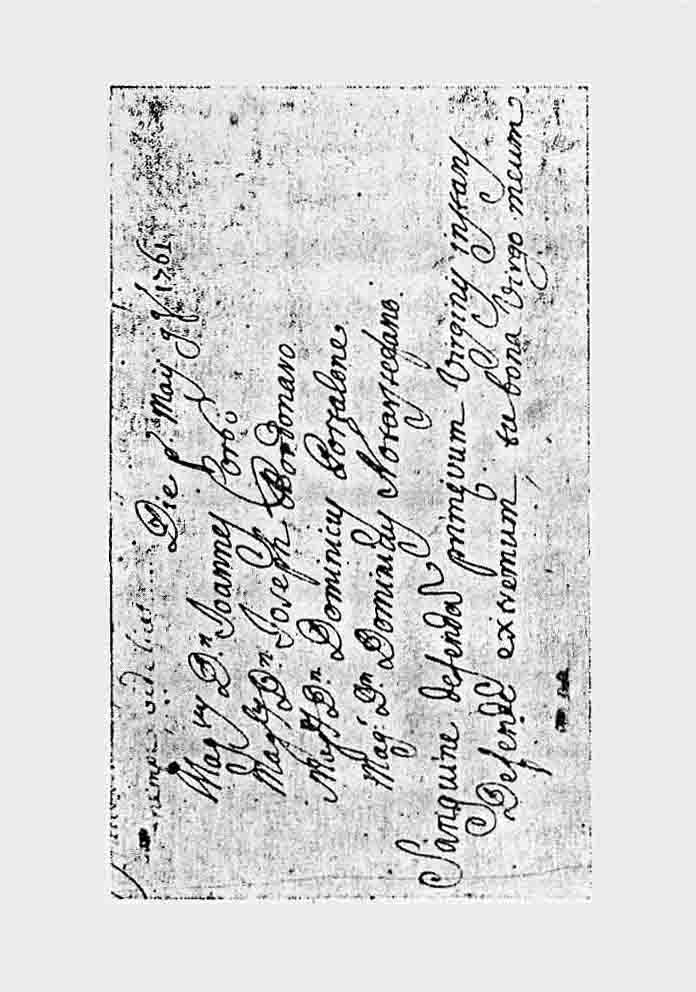 Die P. Maij 9 J 1761
Mag cus Dn Joannes Corbo
Mag cus Dn Joseph Bordonaro
Mag s Dn Dominicus Gorgalone
Mag: Dn Dominicus
Sanguine defendaV primijvum Virginis instans
Defende extremum tu bona Virgo meum